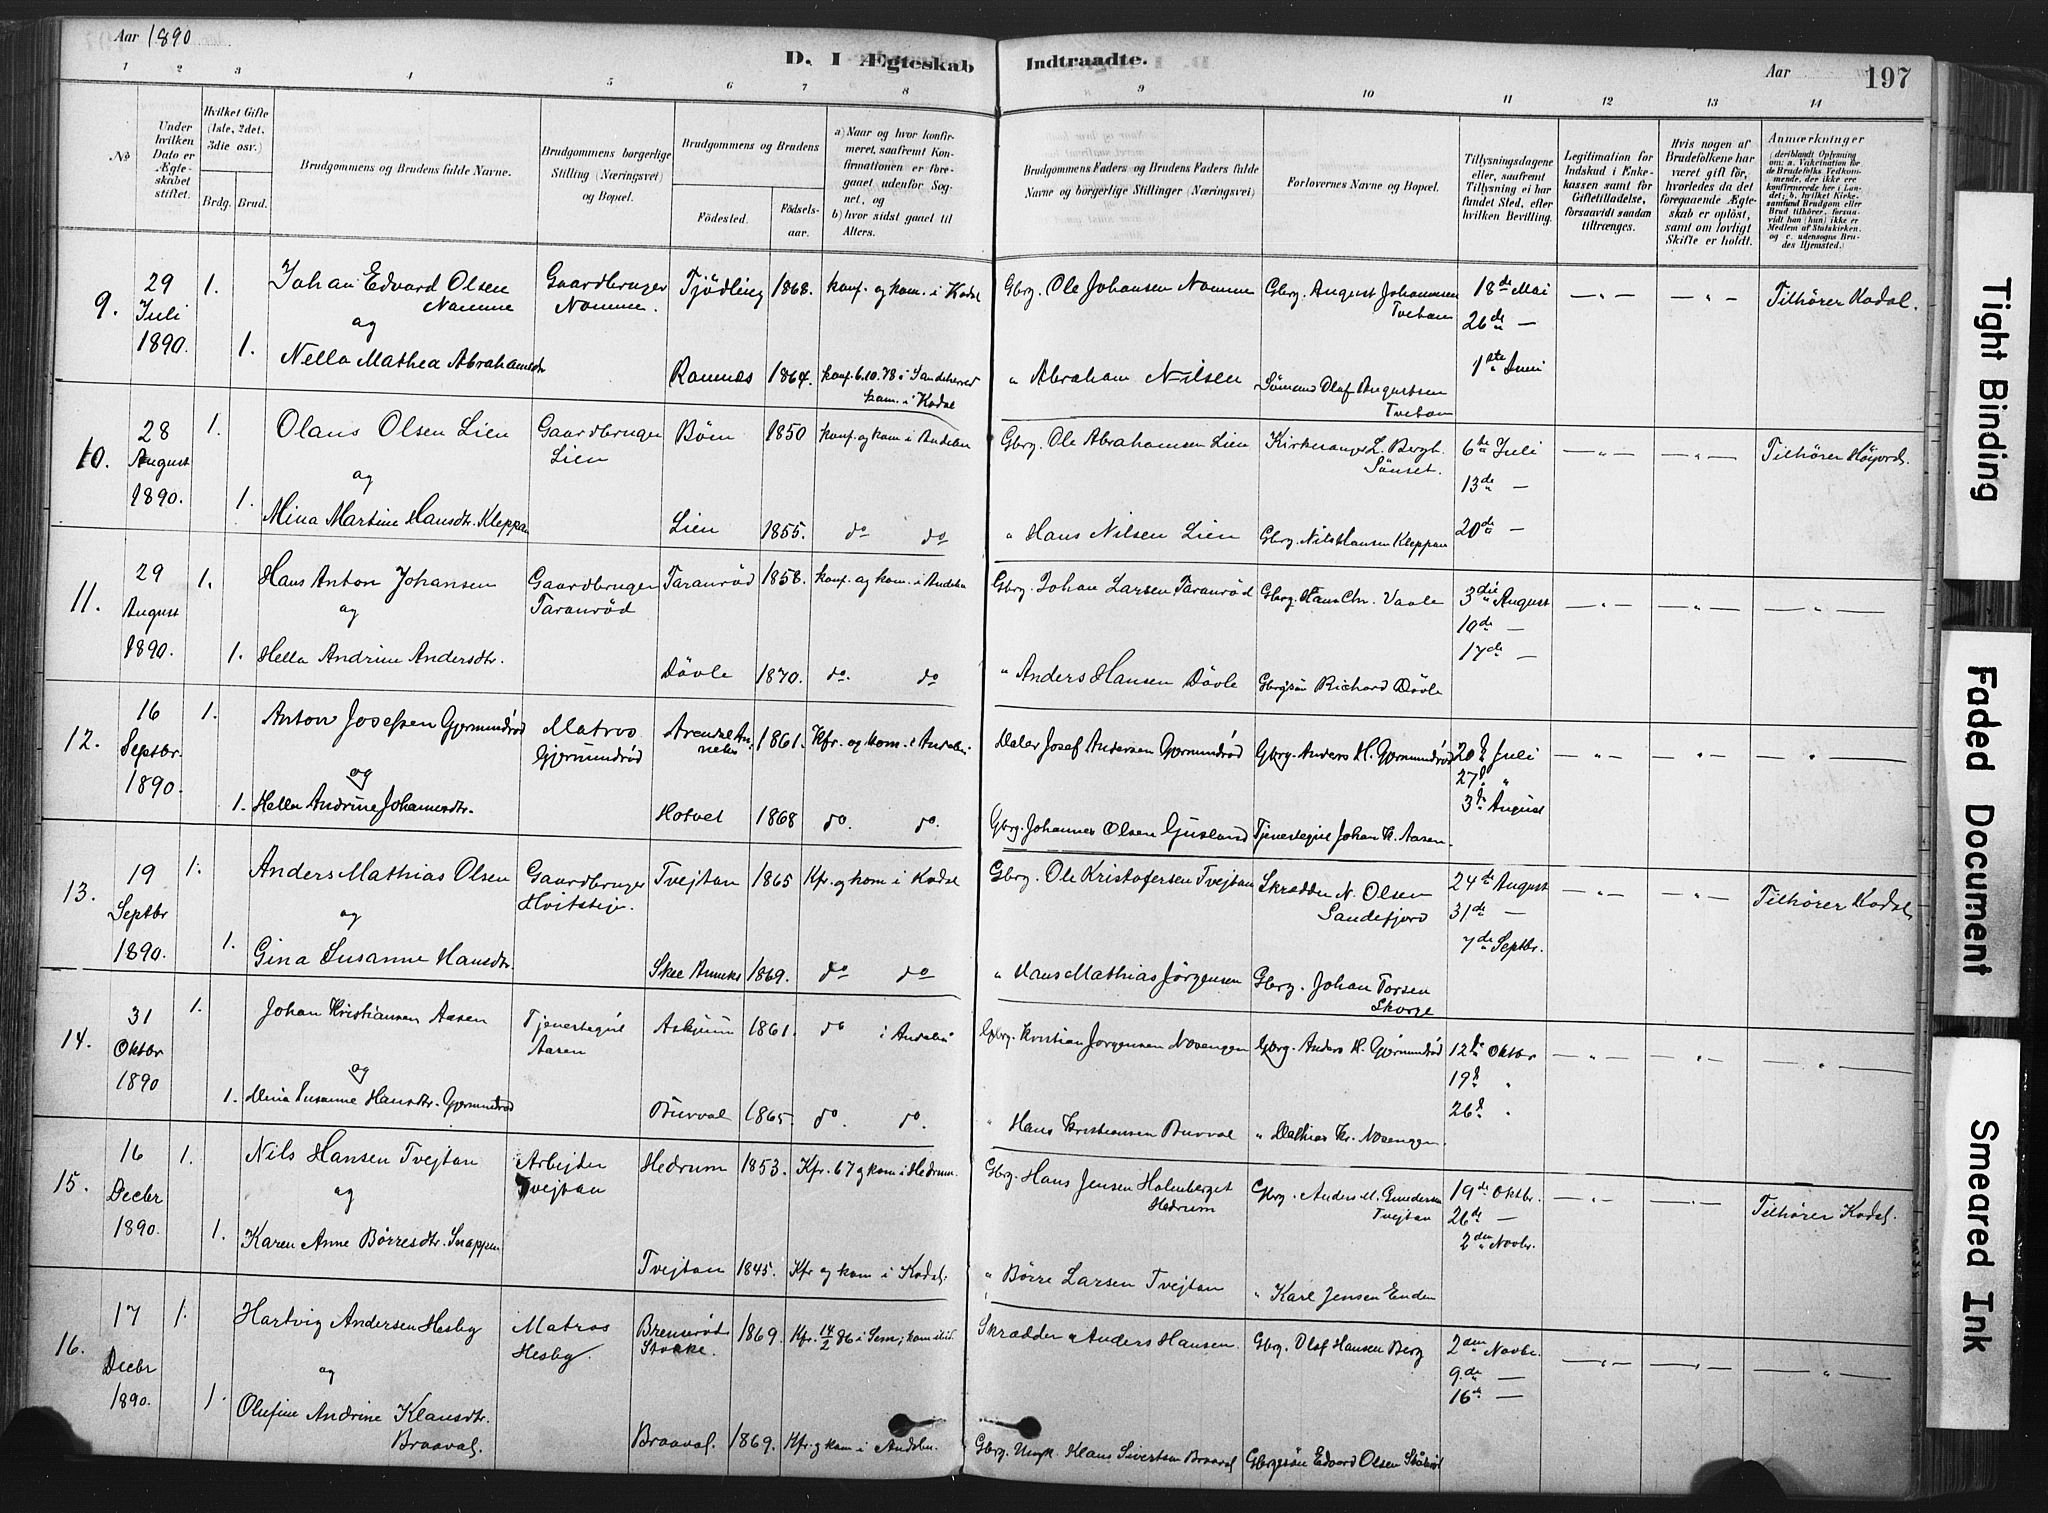 Aar 1890
D. I Ægteskab Indtraadte.
Aar
197
1 2 3 4 5 6 7 8 9 10 11 12 13 14
No
Under hvilken Dato er Ægteskabet stiftet.
Hvilket Gifte (1ste, 2det, 3die osv.)
Brdg. Brud.
Brudgommens og Brudens fulde Navne.
Brudgommens borgerlige Stilling (Næringsvei) og Bopæl.
Brudgommens og Brudens
Fødested. Fødselsaar.
a) Naar og hvor konfirmeret, saafremt Konfirmationen er foregaaet udenfor Sognet, og
b) hvor sidst gaaet til Alters.
Brudgommens Faders og Brudens Faders fulde Navne og borgerlige Stillinger (Næringsvei)
Forlovernes Navne og Bopæl.
Tillysningsdagene eller, saafremt Tillysning ei har fundet Sted, efter hvilken Bevilling.
Legitimation for Indskud i Enkekassen samt for Giftetilladelse, forsaavidt saadan tiltrænges.
Hvis nogen af Brudefolkene har været gift før, hvorledes da det foregaaende Ægteskab er opløst, samt om lovligt Skifte er holdt.
Anmærkninger
(deriblandt Oplysning om: a. Vakcination for de Brudefolks Vedkommende, der ikke ere konfirmerede her i Landet; b. hvilket Kirkesamfund Brudgom eller Brud tilhører, forsaavidt han (hun) ikke er Medlem af Statskirken, og c. udensogns Brudes Hjemsted.)
9. 29 Juli 1890. 1. Johan Edvard Olsen Nomme Gaardbruger Nomme. Tjödling 1868. konf. og kom. i Kodal Gbrg. Ole Johansen Nomme Gbrg. August Johannesen Tvetan 18de Mai Tilhører Kodal.
ag 26de —
1. Nella Mathea Abrahamsdtr Ramnes 1864. konf. 6.10.78 i Sandeherred kom. i Kodal " Abraham Nilsen Sømand Olaf Augustsen Tvetan 1ste Juni
10. 28 August 1890. 1. Olaus Olsen Lien Gaardbruger Lien Bøen 1850 konf. og kom i Andebu Gbrg. Ole Abrahamsen Lien Kirkesanger L. Bergh. Sönset. 6te Juli Tilhører Höjord.
ag 13de —
1. Mina Martine Hansdtr. Kleppan Lien 1855. do do " Hans Nilsen Lien Gbrg. Nils Hansen Kleppan 20de —
11. 29 August 1890. 1. Hans Anton Johansen Gaardbruger Taranrød Taranrød 1858. konf. og kom. i Andebu Gbrg. Johan Larsen Taranrød Gbrg. Hans Chr. Vaale 3die August
ag 10de —
1. Hella Andrine Andersdtr. Døvle 1870. do. do " Anders Hansen Døvle Gbrgsøn Richard Døvle 17de —
12. 16 Septbr. 1890. 1. Anton Josefsen Gjermundrød Matros Gjermundrød 1861. Kfr. og kom. i Andebu Maler Josef Andersen Gjermundrød Gbrg. Anders H. Gjermundrød 20d Juli
og 27d "
1. Hella Andrine Johannesdtr. Hotvet 1868 do. do. Gbrg. Johannes Olsen Gusland Tjenestegut Johan K. Aasen. 3d August
13. 19 Septbr 1890. 1. Anders Mathias Olsen Gaardbruger Hvitsteje. Tvejtan 1865 Kfr. og kom i Kodal Gbrg. Ole Kristofersen Tvejtan Skrædder N. Olsen Sandefjord 24de August Tilhører Kodal
og 31de —
1. Gina Susanne Hansdtr. Skee 1869. do do " Hans Mathias Jørgensen Gbrg. Johan Torsen Skorge 7de Septbr.
14. 31 Oktbr 1890 1. Johan Kristiansen Aasen Tjenestegut Aasen Askjum 1861. do i Andebu Gbrg. Kristian Jørgensen Nosengen Gbrg. Anders H. Gjermundrød 12d Oktbr
og 19d "
1. Mina Susanne Hansdtr. Gjermundrød Burval 1865. do. do. " Hans Kristiansen Burval " Mathias Kr. Nosengen. 26d "
15. 16 Decbr 1890. 1. Nils Hansen Tvejtan Arbejder Tvejtan Hedrum 1853. Kfr. 67 og kom i Hedrum. Gbrg. Hans Jensen Holmberget Hedrum Gbrg. Anders M. Tvejtan 19de Oktbr. Tilhører Kodal.
ag 26de —
1. Karen Anne Børresdtr. Snappen Tvejtan 1845. Kfr og kom i Kodal. " Børre Larsen Tvejtan " Karl Jensen Enden 2den Novbr.
16. 17 Decbr 1890. 1. Hartvig Andersen Hesby Matros Hesby. Brennrød Stokke. 1869. Kfr. 14/2 86 i Sem; kom ibid. Skrædder Anders Hansen. Gbrg. Olaf Hansen Berg 2den Novbr.
og 9de —
1. Olufine Andrine Klausdtr. Braaval. Braaval. 1869. Kfr. og kom i Andebu. Gbrg. Klaus Sivertsen Braaval Gbrgesøn Edvard Olsen 16de —
Tight Binding
Faded Document
Smeared Ink